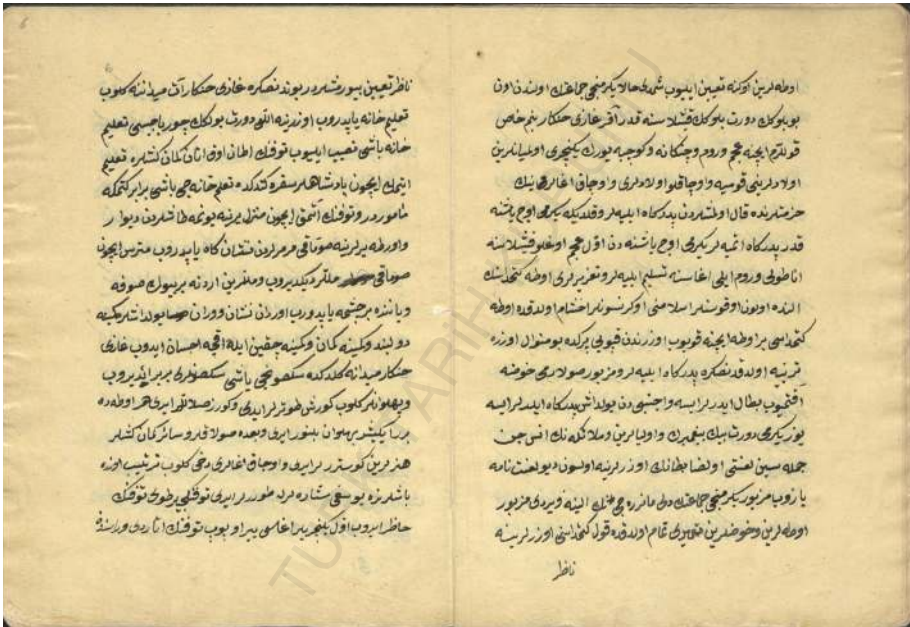 اوطه لرين اوكنه تعيين ايليوب شمدى حالا يكرمنجى جماعتك اولندن اون
بوبلوكك دورت بلوكك قشلاسنه قدر آقر غازى حنكار بنم خاص
قوللرم ايچنه عجم وروم وچنكانه وكوجبه يورك يكيچرى اوليانلرين
اولادلرينى قوميه واوجاقلو اولادلرى واوجاق اغالرى نيك
خزمتلرنده قال اولمشلردن پدركاه ايليه لر وقلديكه يكرمى اوچ ياشنه
قدر پدركاه اتميه لر يكرمى اوچ ياشنه دن اول عجم اوغلو قشلاسنه
اناطولى وروم ايلى اغاسنه تسليم ايليه لر وتعزيرلرى اوطه كتخداسنك
النده اولون اوقوسنلر اسلامنى اوكرنسونلر اخشام اولدقده اوطه
كتخداسى بر اوطه ايچنه قويوب اوزرندن قپويى بركده بومنوال اوزره
تربيه اولدقدنصكره پدركاه ايليه لر ومزبور صولارمى حوضنه
اقتميوب بطال ايدرلرايسه واجنبى دن يولداش پدركاه ايدرلرايسه
يوز يكرمى دورت بيك پيغمبرك واوليالرين وملائكه نك انس جن
جمله سين لعنتى اولضابطانك اوزرلرينه اولسون ديو لعنت نامه
يازوب مزبور يكرمنجى جماعتك النه ويردى مزبور
اوطه لرين وحوضلرين تمام اولدقده قول كتخداسنى اوزرلرينه
ناظر
ناظر تعيين بيورمشلردر بوندنصكره غازى حنكار آت ميداننه كلوب
تعليم خانه ياپدروب اوزرينه اللى دورت بولكك چورباجيسى تعليم
خانه باشى نصيب ايليوب توفنك اطان اوق اتان كمان كشلره تعليم
ايتمك ايچون پادشاهلر سفره كتدكده تعلم خانه جى باشى برابر كتمكه
مأموردر وتوفنك آتمق ايچون منزل يرينه يونمه طاشلردن ديوار
واورطه يرلرينه صوماقى مرمردن نشان كاه ياپدروب مترس ايچون
صوماقى ملر ديكديروب وملرين اردنه بر بيوك صوفه
وياننده بر چشمه ياپدورب اورادن نشان ووران يولداشلر كمينه
دولبند وكمينه كمان وكمينه چفتين ايله اقچه احسان ايدوب غازى
حنكار ميدانه كلدكده سكصونجى باشى سكصونلرى برابر
وپهلوانلر كلوب كورش طوترلرايدى وكورز صلاتلرايدى هر اوطه ده
برر ايكيشر پهلوان بلنور ايدى وبعده صولاقلر وسائر كمان كشلر
هنرلرين كوسترر لرايدى واوجاق اغالرى دخى كلوب ترتيب اوزه
باشلرنده يوسفى طوررلرايدى توفنكجى پر طولى توفنك
حاظر ايدوب اول يكيچريلر اغاسى اوپوب توفنك اتاردى